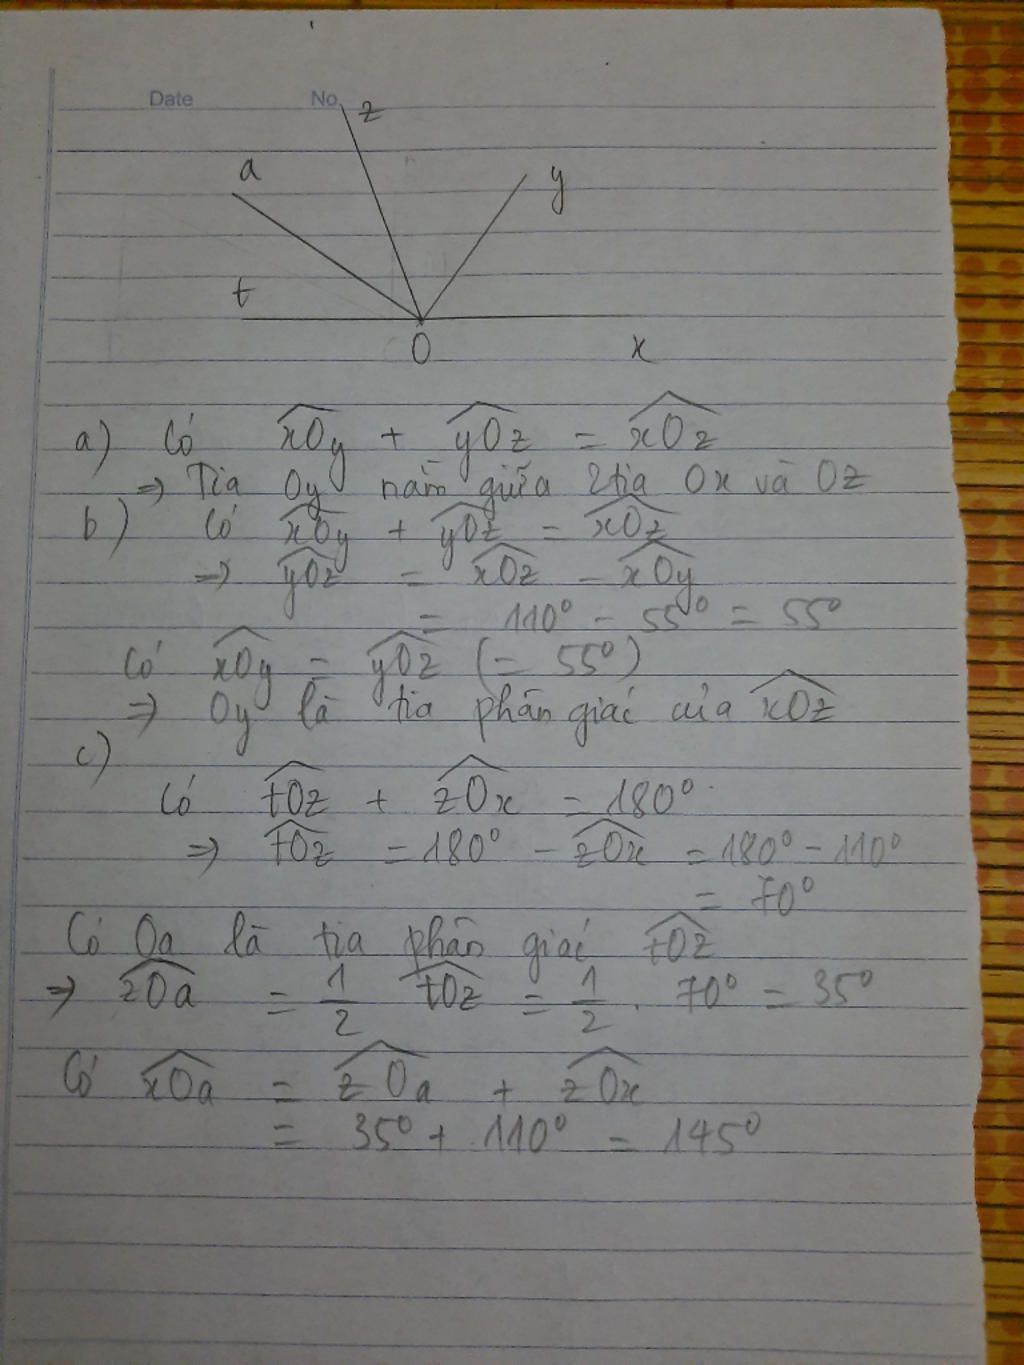 Date No
z
a
y
t
O
x
a) Có $\widehat{xOy} + \widehat{yOz} = \widehat{xOz}$
⇒ Tia Oy nằm giữa 2 tia Ox và Oz
b) Có $\widehat{xOy} + \widehat{yOz} = \widehat{xOz}$
⇒ $\widehat{yOz} = \widehat{xOz} - \widehat{xOy}$
= 110° - 55° = 55°
Có $\widehat{xOy} = \widehat{yOz}$ (= 55°)
⇒ Oy là tia phân giác của $\widehat{xOz}$
c)
Có $\widehat{tOz} + \widehat{zOx} = 180°$
⇒ $\widehat{tOz} = 180° - \widehat{zOx} = 180° - 110°$
= 70°
Có Oa là tia phân giác $\widehat{tOz}$
⇒ $\widehat{zOa} = \frac{1}{2} \widehat{tOz} = \frac{1}{2} . 70° = 35°$
Có $\widehat{xOa} = \widehat{zOa} + \widehat{zOx}$
= 35° + 110° = 145°